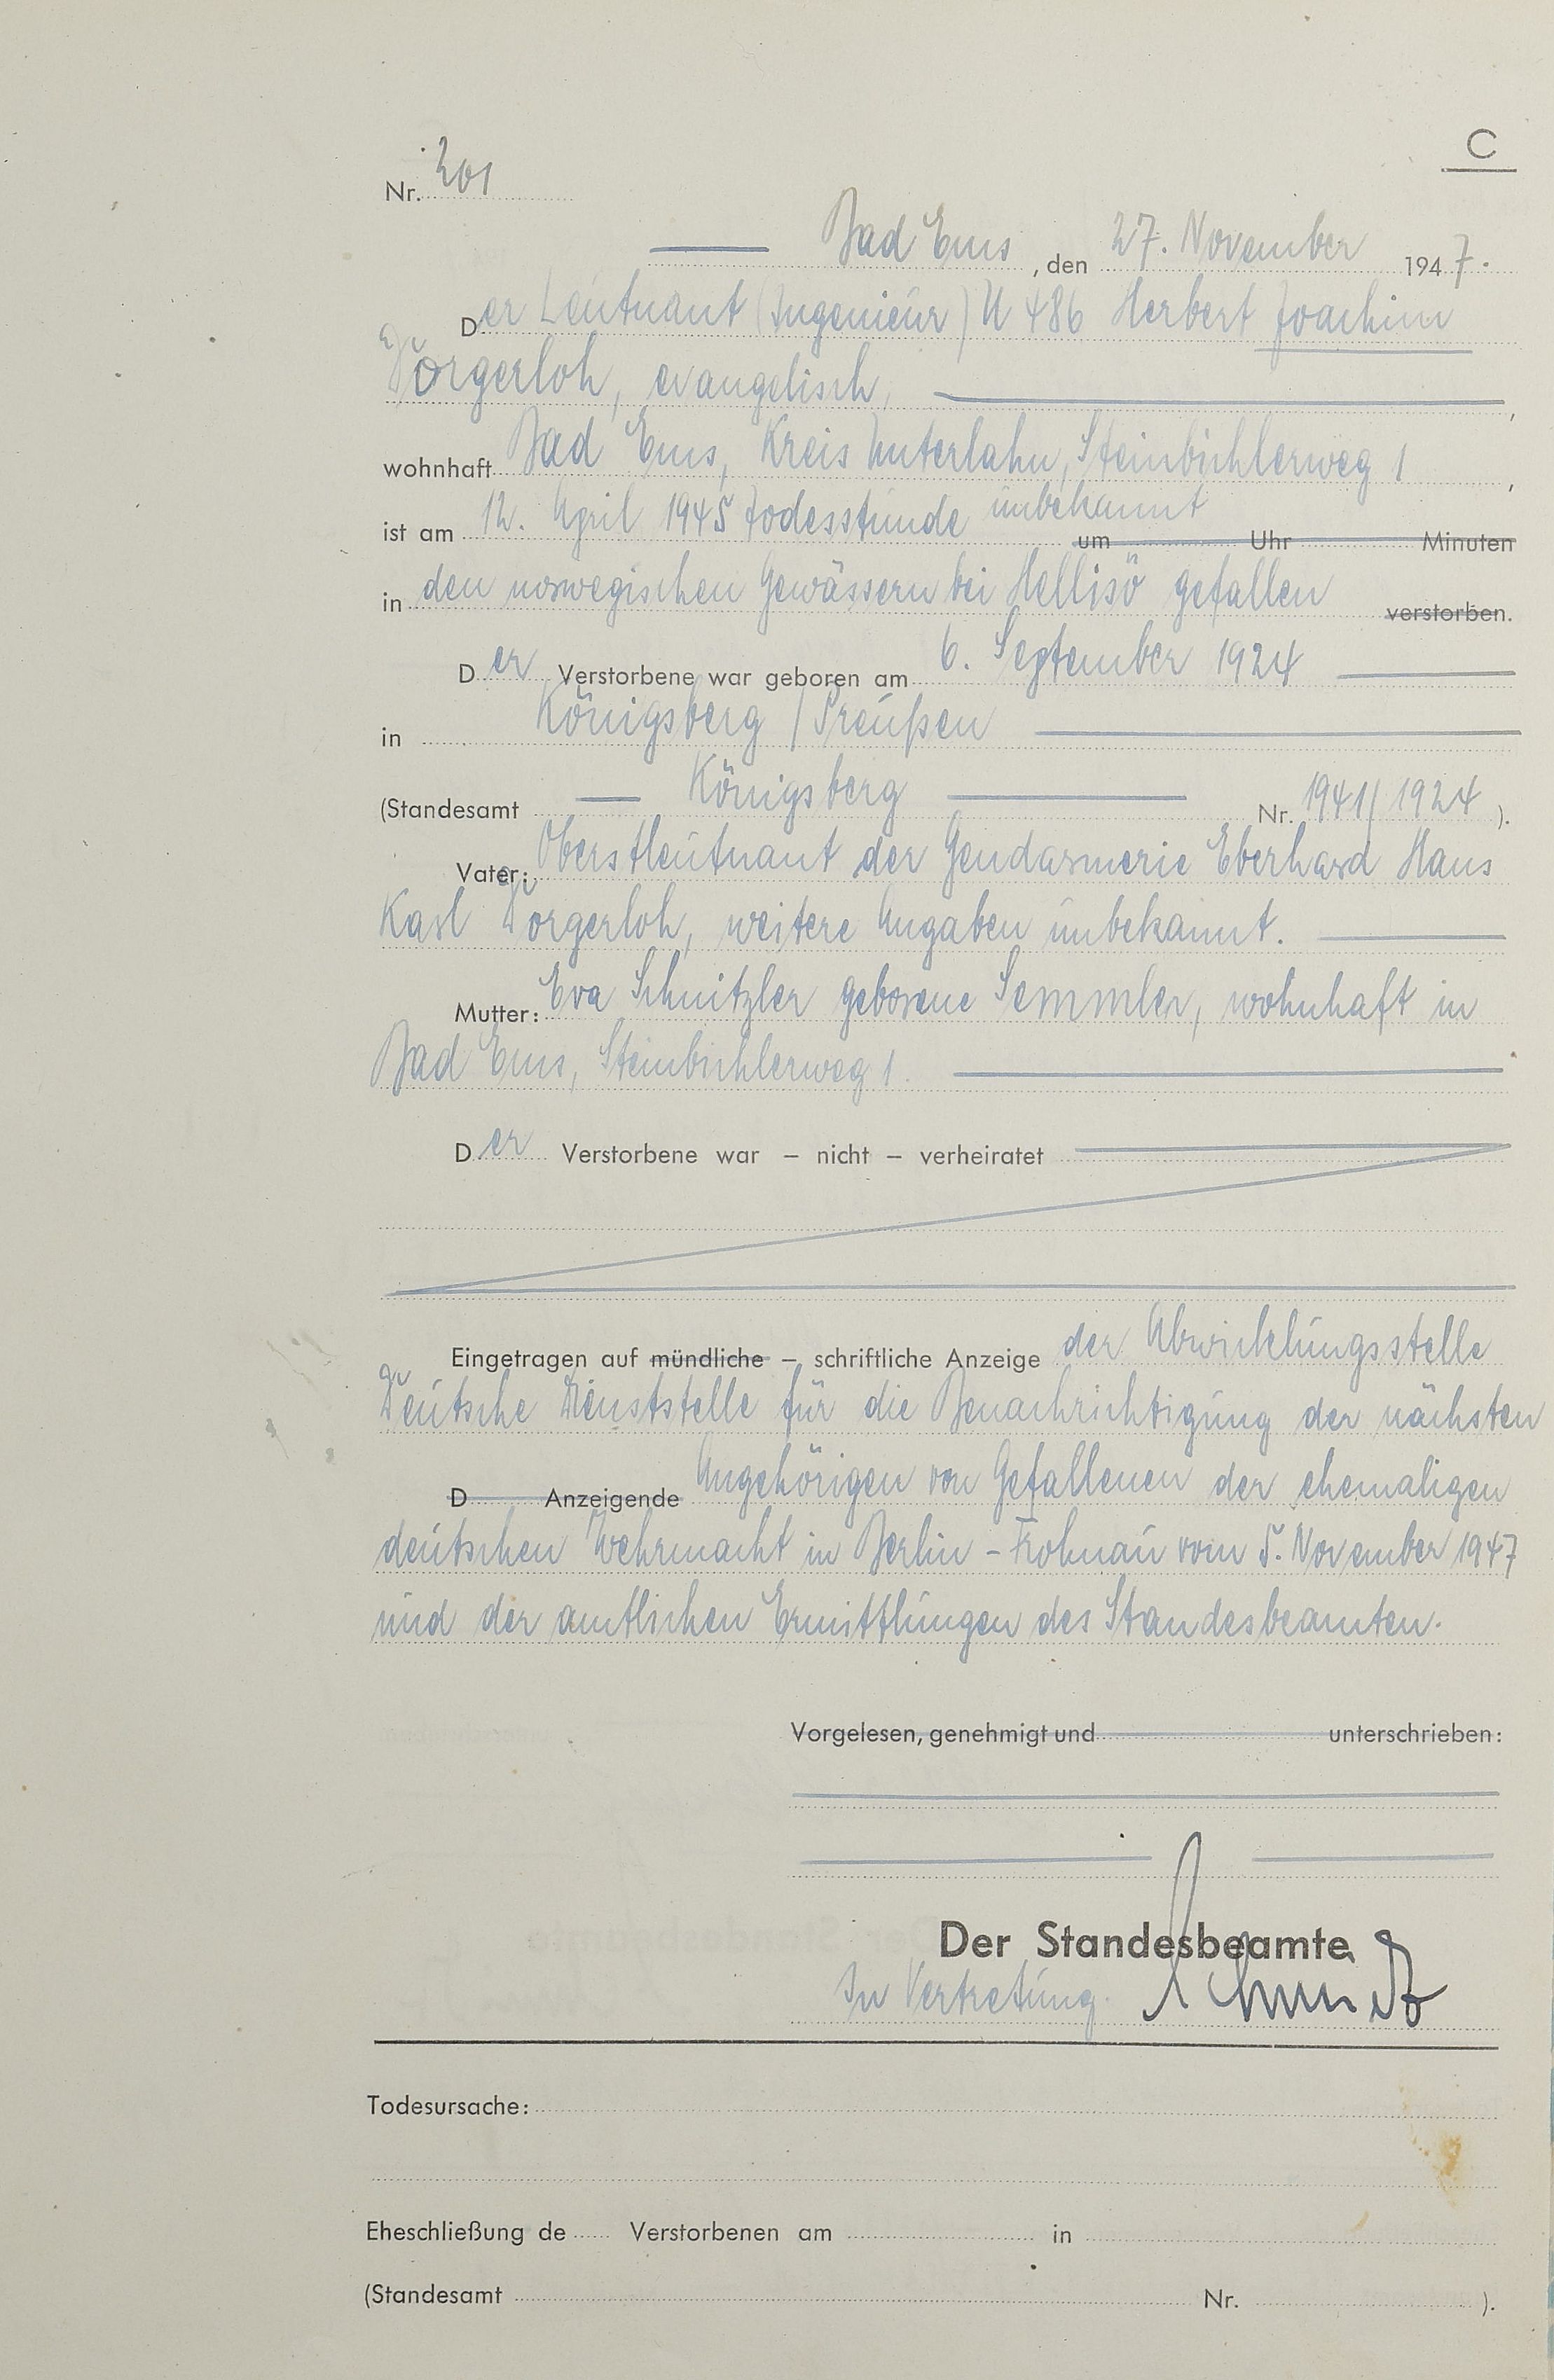 C
Nr. 201
Bad Ems, den 27. November 1947.
Der Leutnant (Ingenieur) U 486 Herbert Joachim
Dorgerloh, evangelisch,
wohnhaft Bad Ems, Kreis Unterlahn, Steinbichlerweg 1,
ist am 12. April 1945 Todesstunde unbekannt um Uhr Minuten
in den norwegischen Gewässern bei Hellisö gefallen verstorben.
Der Verstorbene war geboren am 6. September 1924
in Königsberg / Preußen
(Standesamt Königsberg Nr. 1941/1924).
Vater: Oberstleutnant der Gendarmerie Eberhard Hans
Karl Dorgerloh, weitere Angaben unbekannt.
Mutter: Eva Schnitzler geborene Semmler, wohnhaft in
Bad Ems, Steinbichlerweg 1.
Der Verstorbene war – nicht – verheiratet
Eingetragen auf mündliche – schriftliche Anzeige der Abwickelungsstelle
Deutsche Dienststelle für die Benachrichtigung der nächsten
D Anzeigende Angehörigen von Gefallenen der ehemaligen
deutschen Wehrmacht in Berlin - Frohnau vom 5. November 1947
und der amtlichen Ermittlungen des Standesbeamten.
Vorgelesen, genehmigt und unterschrieben:
Der Standesbeamte
In Vertretung. Schmidt
Todesursache:
Eheschließung de Verstorbenen am in
(Standesamt Nr. ).